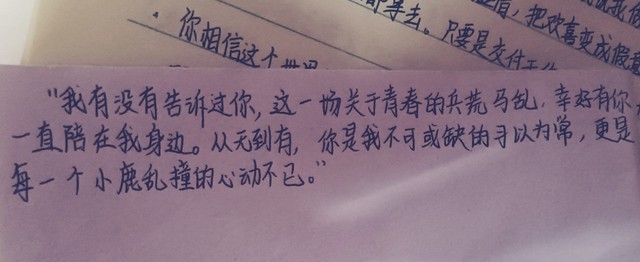 你相信这个世界
都等去。只要是交付于
，把欢喜变成假
"我有没有告诉过你, 这一场关于青春的兵荒马乱. 幸好有你,
一直陪在我身边。从无到有, 你是我不可或缺的习以为常, 更是
每一个小鹿乱撞的心动不已。"